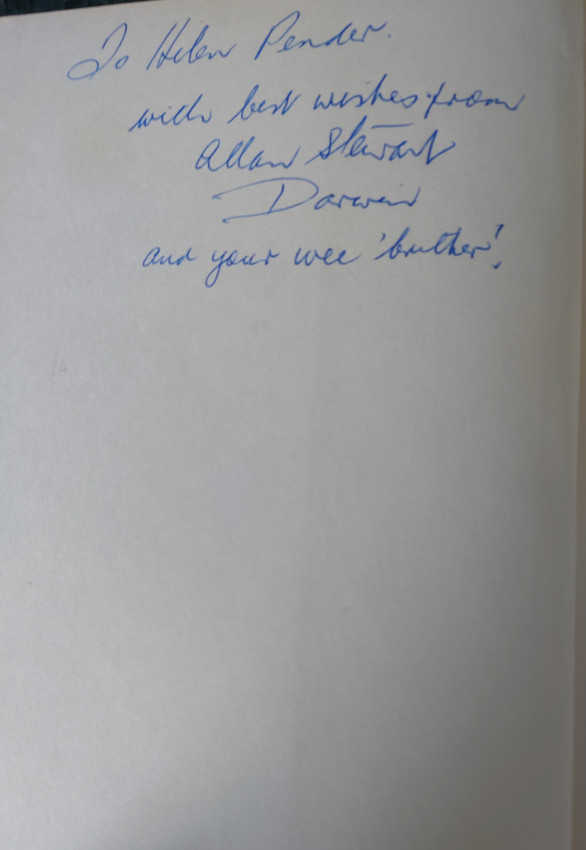 To Helen Pender.
with best wishes from
Allan Stewart
Darwin
and your wee 'bruther'.